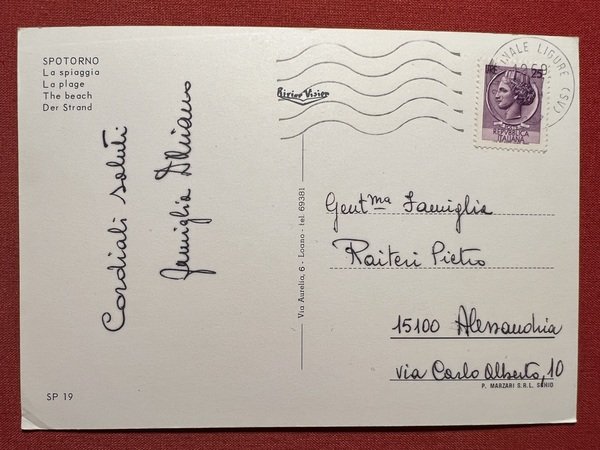 SPOTORNO
La spiaggia
La plage
The beach
Der Strand
Cordiali saluti
famiglia
SP 19
Via Aurelia, 6 - Loano - tel. 69381
LIRE 25
REPVBBLICA
ITALIANA
NALE LIGURE (SV)
Gentma Famiglia
Raiteri Pietro
15100 Alessandria
via Carlo Alberto, 10
P. MARZARI S.R.L. SCHIO